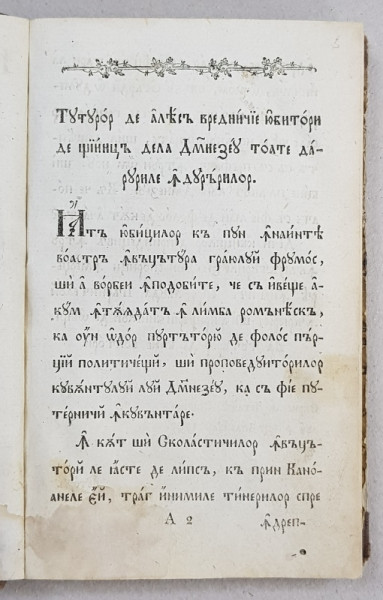 Тꙋтꙋрѡ́р де а҆лѣ́съ вредничїе ю҆биторй
де щїи́нцъ дела Дꙋмнезе́ꙋ тоа́те да́-
рꙋриле ꙟдꙋрѣрилор.
И҆́тъ ю҆бицилор къ пꙋн ꙟнаи́нтѣ
воа́стръ ꙟвъцътꙋра граюлꙋй фрꙋмо́с,
ши а҆ ворбей ꙟподобите, че съ и҆веще а҆-
кꙋм ꙟтѫѫда́тъ ꙟ лимба ромъне́скъ,
ка ꙋ҆н ѡ҆до́р пꙋртъто́рю де фоло́с пър-
ций политиче́щй, ши проповедꙋито́рилор
кꙋвѫнтꙋлꙋй лꙋй Дꙋмнезе́ꙋ, ка съ фїе пꙋ-
те́рничй ꙟкꙋвѫнтаре.
Ꙟ кѫт ши Сколастичилор ꙟвъцъ-
то́рй ле ꙗ҆сте де ли́псъ, къ прин Кано́-
анеле є҆й, тра́г и҆нимиле ти́нерилор спре
А 2
ꙟдреп-